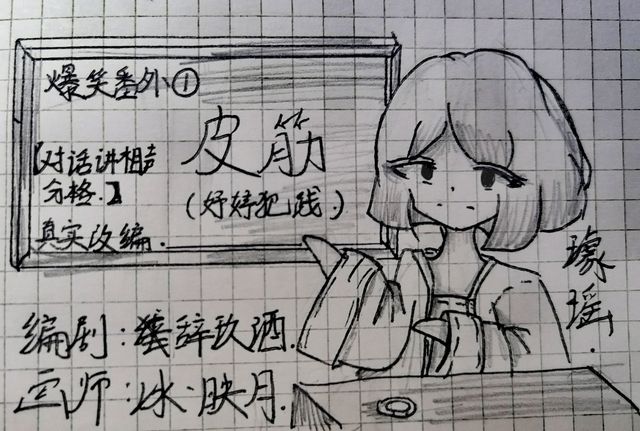 爆笑番外①
皮筋
【对话讲相声
分格.】
(好婷犯贱)
真实改编.
瑔瑶.
编剧:辞玖酒.
画师:冰·映月.